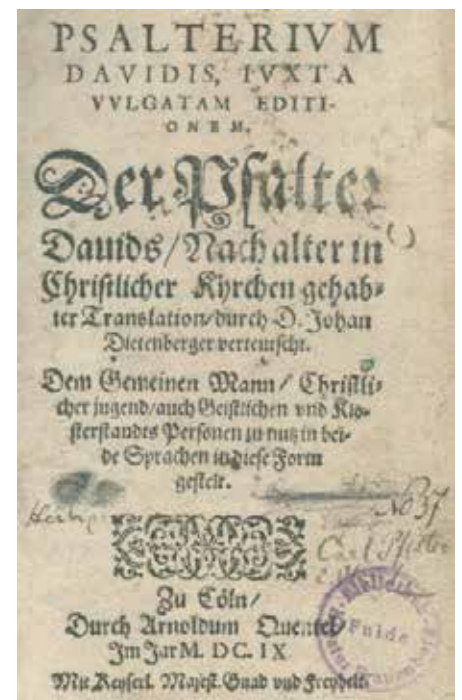 PSALTERIVM
DAVIDIS, IVXTA
VVLGATAM EDITI-
ONEM.
Der Psalter
Dauids/Nach alter in
Christlicher Kyrchen gehab-
ter Translation/durch D. Johan
Dietenberger verteutscht.
Dem Gemeinen Mann/ Christli-
cher jugend/auch Geistlichen vnd Klo-
sterstandts Personen zu nutz in bei-
de Sprachen in diese Form
gestelt.
No 37
Carl
Zu Cöln/
Durch Arnoldum Quentel/
Im Jar M. DC. IX
Mit Keyserl. Majest. Gnad vnd Freyheit.
Fulda